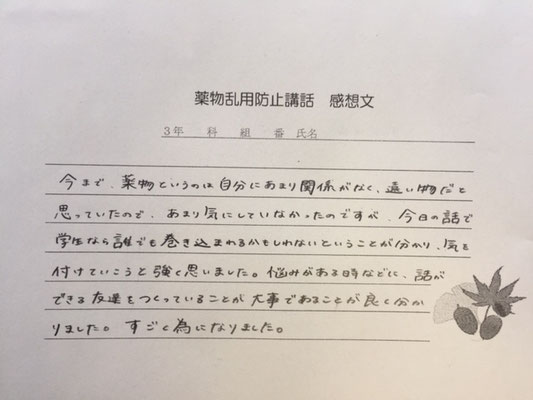 薬物乱用防止講話 感想文
3年 科 組 番 氏名
今まで、薬物というのは自分にあまり関係がなく、遠い物だと
思っていたので、あまり気にしていなかったのですが、今日の話で
学生なら誰でも巻き込まれるかもしれないということが分かり、気を
付けていこうと強く思いました。悩みがある時などに、話が
できる友達をつくっていることが大事であることが良く分か
りました。すごく為になりました。